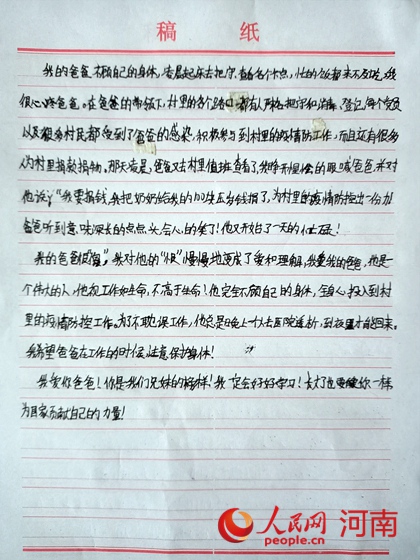 稿 纸
我的爸爸不顾自己的身体,凌晨起床去把守、查看各个卡点,忙的饭都来不及吃,我
很心疼爸爸。在爸爸的带领下,村里的各个路口,都有人严格把守和消毒、登记,每个党员
以及很多村民都受到了爸爸的感染,积极参与到村里的疫情防控工作,而且还有很多
人为村里捐款捐物。那天凌晨,爸爸又去村里值班查看了,我睁开惺忪的眼喊爸爸,并对
他说:“我要捐钱,我把奶奶给我的加压岁钱捐了,为村里的疫情防控出一份力
爸爸听到意味深长的点点头,会心的笑了!他又开始了一天的
我的爸爸很“狠”,我对他的“恨”慢慢地变成了爱和理解,我爱我的爸爸,他是一
个伟大的人,他视工作如生命,不高于生命!他完全不顾自己的身体,全身心投入到村
里的疫情防控工作。为了不耽误工作,他总是晚上一个人去医院透析,到夜里才能回来。
我希望爸爸在工作的时候,注意保护身体!
我爱你爸爸!你是我们兄妹的榜样!我一定会好好学习!长大了也要像你一样
为国家贡献自己的力量!
人民网 河南
people.cn